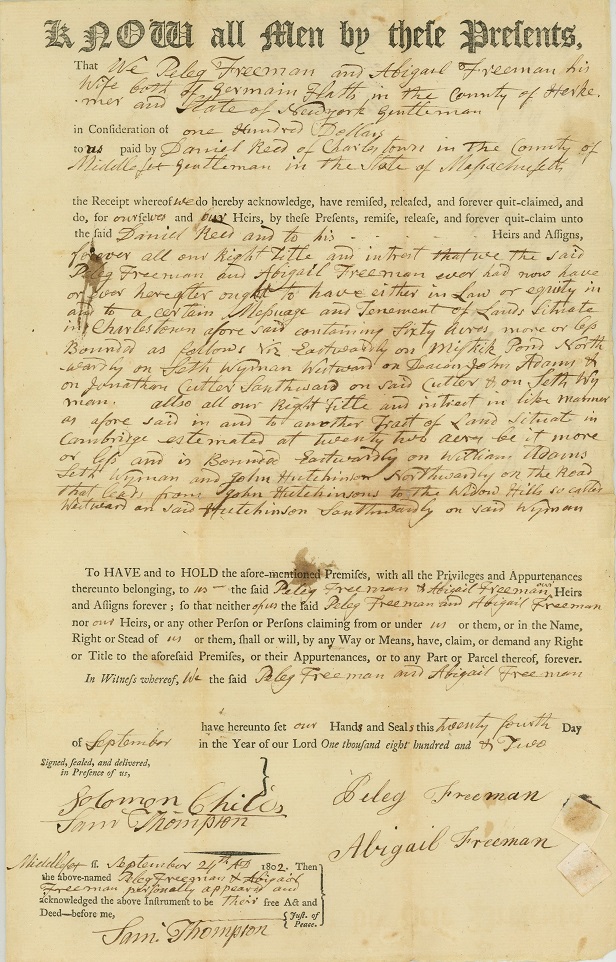 KNOW all Men by these Presents,
That We Peleg Freeman and Abigail Freeman his
Wife both of Germain Flatts in the County of Herke-
mer and State of Newyork Gentleman
in Consideration of one Hundred Dollars
to us paid by Daniel Reed of Charlestown in the County of
Middlesex Gentleman in the State of Massachusetts
the Receipt whereof we do hereby acknowledge, have remised, released, and forever quit-claimed, and
do, for ourselves and our Heirs, by these Presents, remise, release, and forever quit-claim unto
the said Daniel Reed and to his Heirs and Assigns,
forever all our Right Title and intrest that we the said
Peleg Freeman and Abigail Freeman ever had now have
or ever hereafter ought to have either in Law or equity in
and to a certain Mesuage and Tenement of Lands Situate
in Charlestown afore said containing Sixty Acres more or less
Bounded as follows Viz Eastwardly on Mistick Pond North
wardly on Seth Wyman Westward on Deacon John Adams &
on Jonathan Cutler Southward on said Cutler & on Seth Wy
man. allso all our Right Title and intrest in like manner
as afore said in and to another Tract of Land Situate in
Cambridge estemated at twenty two acres be it more
or less and is Bounded Eastwardly on William Adams
Seth Wyman and John Hutchinson Northwardly on the Road
that leads from John Hutchinsons to the Widow Hills so called
Westward on said Hutchinson Southwardly on said Wyman
To HAVE and to HOLD the afore-mentioned Premises, with all the Privileges and Appurtenances
thereunto belonging, to us the said Peleg Freeman & Abigail Freeman our Heirs
and Assigns forever; so that neither of us the said Peleg Freeman and Abigail Freeman
nor our Heirs, or any other Person or Persons claiming from or under us or them, or in the Name,
Right or Stead of us or them, shall or will, by any Way or Means, have, claim, or demand any Right
or Title to the aforesaid Premises, or their Appurtenances, or to any Part or Parcel thereof, forever.
In Witness whereof, We the said Peleg Freeman and Abigail Freeman
have hereunto set our Hands and Seals this twenty fourth Day
of September in the Year of our Lord One thousand eight hundred and & Two
Signed, sealed, and delivered,
in Presence of us,
Solomon Childs
Sam Thompson
Peleg Freeman
Abigail Freeman
Middlesex ss. September 24th AD 1802. Then
the above-named Peleg Freeman & Abigail
Freeman personally appeared and
acknowledged the above Instrument to be their free Act and
Deed—before me,
Just. of
Peace.
Sam. Thompson